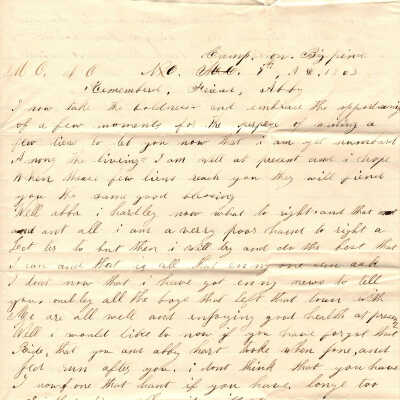 Camp on Big pine
M O. N O N O. 8th, 1863
Remembered, Friend, Abby
I now take the boldness and embrace the oppertunity
of a few moments for the purpose of riming a
few liens to let you now that i am yet numbard
Among the liveing = I am well at present and i hope
When these few liens reach you they will fiend
you the same good blessing
Well abba i hardley now what to right and that
and not all i am a verry poor hand to right a
let er to but then i will try and do the best that
I can and that is all that enny one can ask
I dont now that i have got enny news to tell
you onley all the boys that left that town with
Me are all well and enjoying good health at presen
Well i would liked to now if you have forgot that
Ride, that you and abby hart tooke when fone, and
fed run after you. i dont think that you have
I now one that hant if you have, longe too